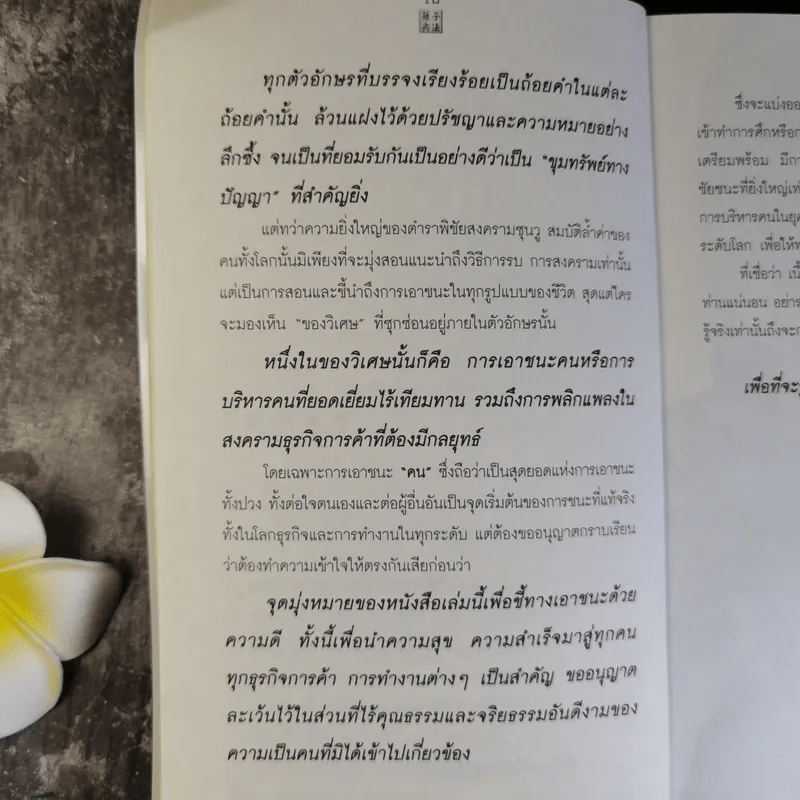 孫子
兵法
ทุกตัวอักษรที่บรรจงเรียงร้อยเป็นถ้อยคำในแต่ละ
ถ้อยคำนั้น ล้วนแฝงไว้ด้วยปรัชญาและความหมายอย่าง
ลึกซึ้ง จนเป็นที่ยอมรับกันเป็นอย่างดีว่าเป็น “ขุมทรัพย์ทาง
ปัญญา” ที่สำคัญยิ่ง
แต่ทว่าความยิ่งใหญ่ของตำราพิชัยสงครามซุนวู สมบัติล้ำค่าของ
คนทั้งโลกนั้นมิเพียงที่จะมุ่งสอนแนะนำถึงวิธีการรบ การสงครามเท่านั้น
แต่เป็นการสอนและชี้นำถึงการเอาชนะในทุกรูปแบบของชีวิต สุดแต่ใคร
จะมองเห็น “ของวิเศษ” ที่ซุกซ่อนอยู่ภายในตัวอักษรนั้น
หนึ่งในของวิเศษนั้นก็คือ การเอาชนะคนหรือการ
บริหารคนที่ยอดเยี่ยมไร้เทียมทาน รวมถึงการพลิกแพลงใน
สงครามธุรกิจการค้าที่ต้องมีกลยุทธ์
โดยเฉพาะการเอาชนะ “คน” ซึ่งถือว่าเป็นสุดยอดแห่งการเอาชนะ
ทั้งปวง ทั้งต่อใจตนเองและต่อผู้อื่นอันเป็นจุดเริ่มต้นของการชนะที่แท้จริง
ทั้งในโลกธุรกิจและการทำงานในทุกระดับ แต่ต้องขออนุญาตกราบเรียน
ว่าต้องทำความเข้าใจให้ตรงกันเสียก่อนว่า
จุดมุ่งหมายของหนังสือเล่มนี้เพื่อชี้ทางเอาชนะด้วย
ความดี ทั้งนี้เพื่อนำความสุข ความสำเร็จมาสู่ทุกคน
ทุกธุรกิจการค้า การทำงานต่างๆ เป็นสำคัญ ขออนุญาต
ละเว้นไว้ในส่วนที่ไร้คุณธรรมและจริยธรรมอันดีงามของ
ความเป็นคนที่มิได้เข้าไปเกี่ยวข้อง
ซึ่งจะแบ่งออ
เข้าทำการศึกหรือก
เตรียมพร้อม มีกา
ชัยชนะที่ยิ่งใหญ่เท่
การบริหารคนในยุค
ระดับโลก เพื่อให้ท
ที่เชื่อว่า เนื้
ท่านแน่นอน อย่าร
รู้จริงเท่านั้นถึงจะก
เพื่อที่จะรู